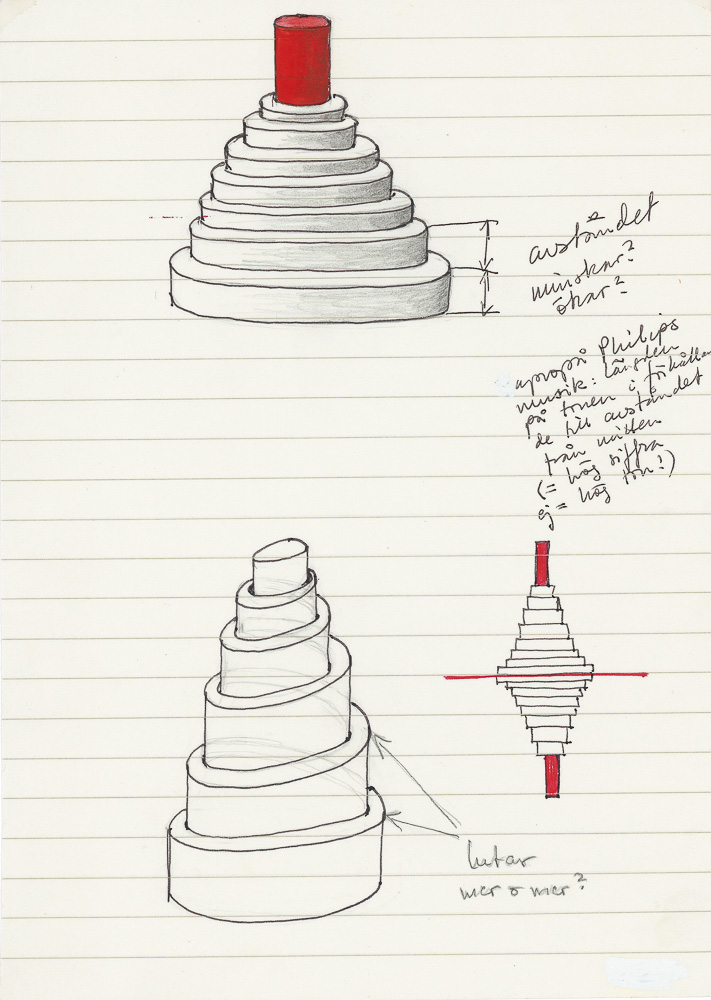 avståndet
minskar?
ökar?
apropå Philips
musik: längden
på tonen i förhållan
de till avståndet
från mitten
(= hög siffra
ej = hög ton!)
lutar
mer o mer?